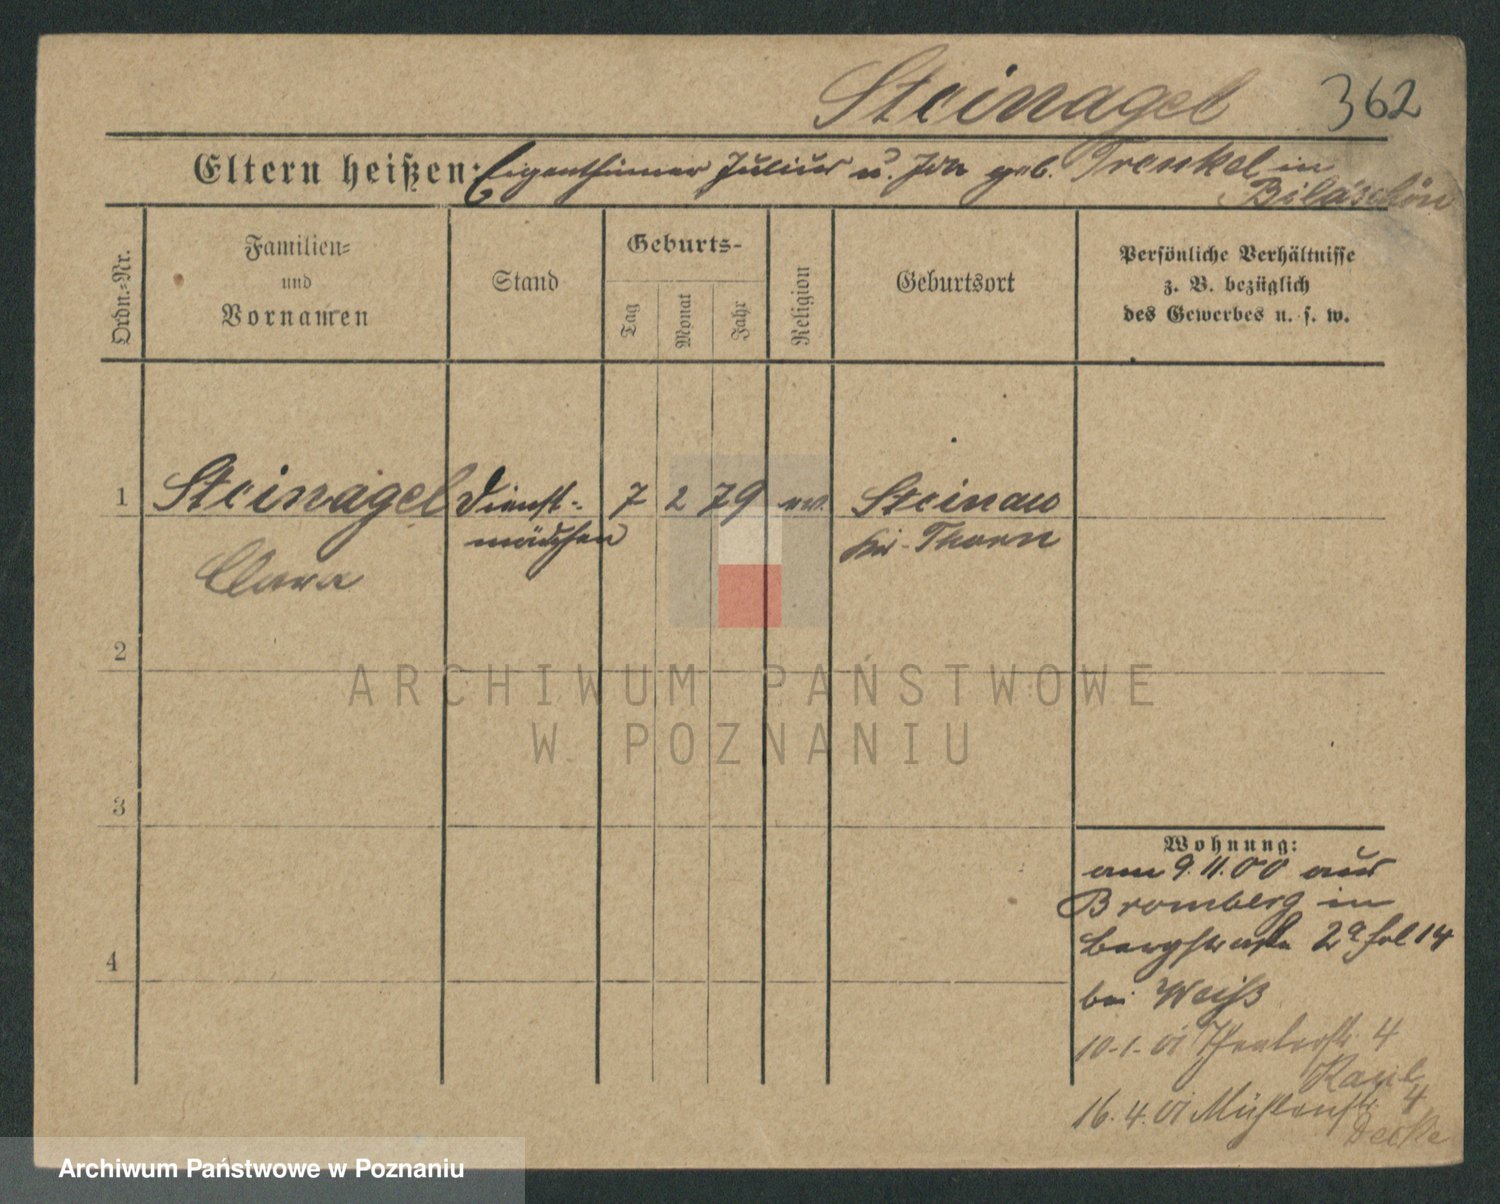 Steinagel 362
Eltern heißen: Eigenthümer Julius u. Ida geb. Trenkel in
Biläschön
Ordn.-Nr.
Familien-
und
Vornamen
Stand
Geburts-
Tag
Monat
Jahr
Religion
Geburtsort
Persönliche Verhältnisse
z. B. bezüglich
des Gewerbes u. s. w.
1 Steinagel Dienst- 7 2 79 ev. Steinau
mädchen Kr. Thorn
Clara
2
ARCHIWUM PAŃSTWOWE
W POZNANIU
3
Wohnung:
am 9.11.00 aus
Bromberg in
Bergstraße 2a fol 14
4
bei Weiß
10.1.01 Theaterstr 4
16.4.01 Mühlenstr 4
Archiwum Państwowe w Poznaniu